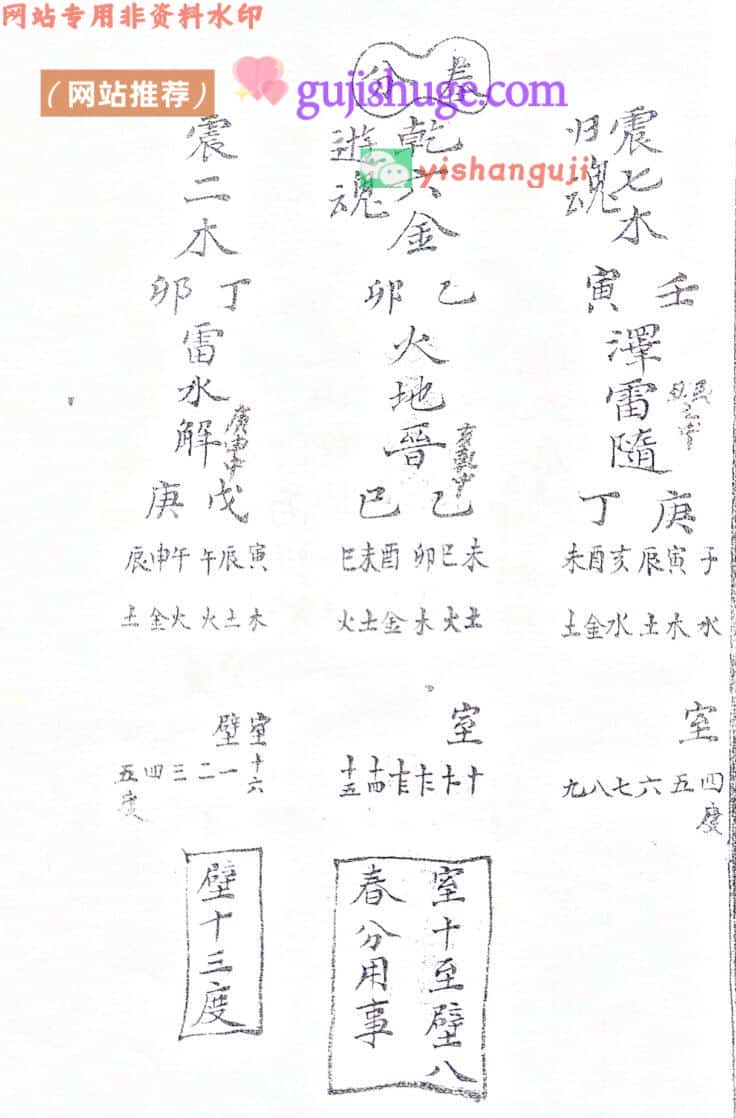 网站专用非资料水印
（网站推荐） gujishuge.com
yishanguji
春分
震七木
归魂
壬寅
澤雷隨
庚丁
子寅辰亥酉未
水木土水金土
室
四度五六七八九
乾六金
遊魂
乙卯
火地晉
乙巳
未巳卯酉未巳
土火木金土火
室
十十一十二十三十四十五
室十至壁八
春分用事
震二木
丁卯
雷水解
戊庚
寅辰午午申辰
木土火火金土
室十六
壁一二三四五度
壁十三度